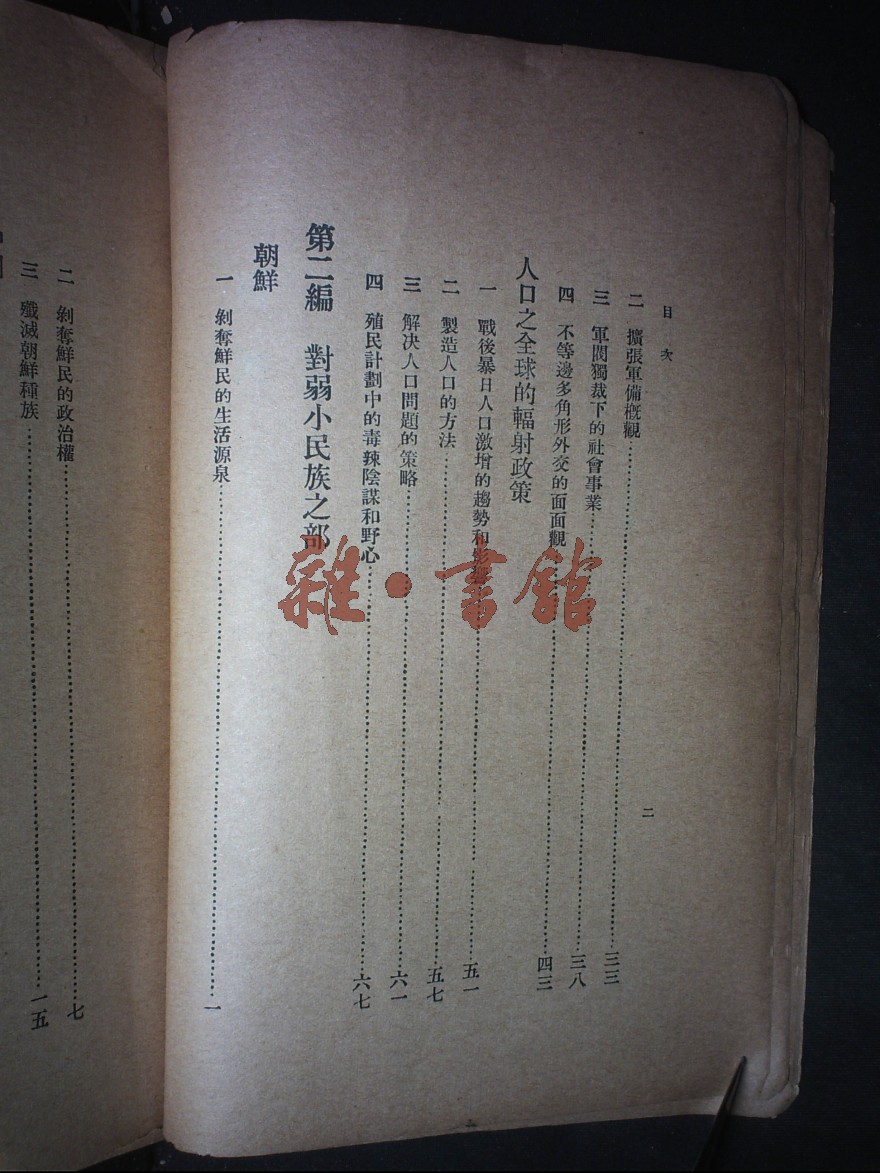 目次
二
二 擴張軍備概觀 三三
三 軍閥獨裁下的社會事業 三八
四 不等邊多角形外交的面面觀 四三
人口之全球的輻射政策
一 戰後暴日人口激增的趨勢和影響 五一
二 製造人口的方法 五七
三 解決人口問題的策略 六一
四 殖民計劃中的毒辣陰謀和野心 六七
第二編 對弱小民族之部
朝鮮
一 剝奪鮮民的生活源泉 一
二 剝奪鮮民的政治權 七
三 殲滅朝鮮種族 一五
雜·書館